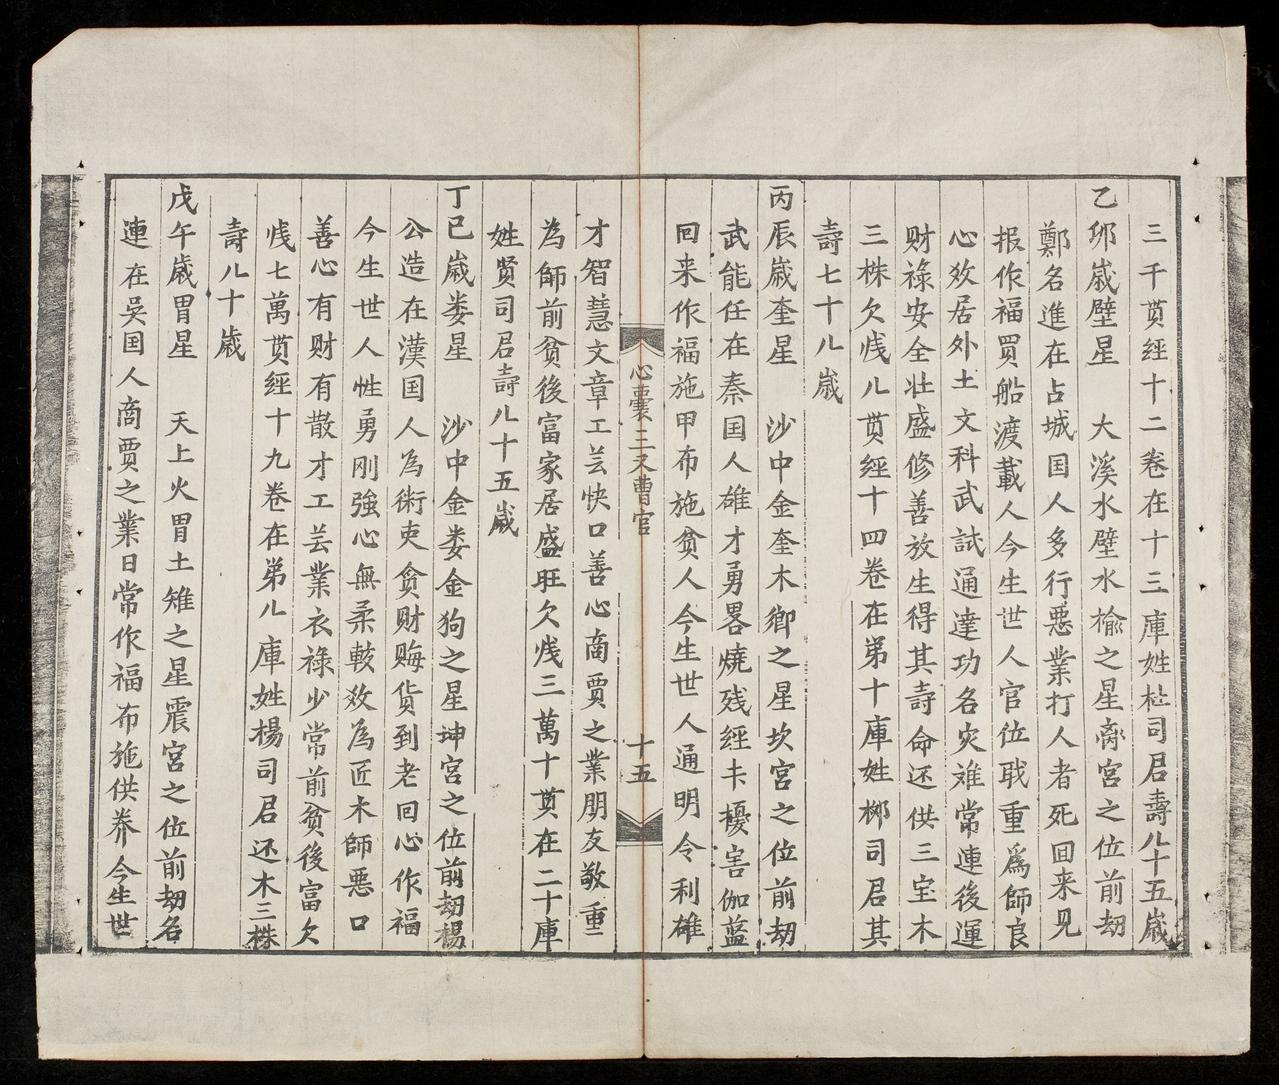 三千贯經十二卷在十三庫姓杜司君壽八十五歲
乙卯歲壁星　大溪水壁水㺄之星离宮之位前刼
鄭名進在占城国人多行惡業打人者死回来見
报作福買船渡載人今生世人官位戢重爲師良
心效居外土文科武試通達功名灾难常連後運
财禄安全壮盛修善放生得其壽命还供三宝木
三株欠㦮八贯經十四卷在第十庫姓柳司君其
壽七十八歲
丙辰歲奎星　沙中金奎木鄉之星坎宮之位前刼
武能任在秦国人雄才勇畧燒残經卡擾害伽蓝
回来作福施甲布施贫人今生世人通明令利雄
心囊三又曹官　十五
才智慧文章工芸快口善心商贾之業朋友敬重
為師前贫後富家居盛旺欠㦮三萬十贯在二十庫
姓贤司君壽八十五歲
丁巳歲娄星　沙中金娄金狗之星坤宮之位前刼楊
公造在漢国人為術吏貪财賄貨到老回心作福
今生世人性勇刚強心無柔較效為匠木師惡口
善心有财有散才工芸業衣禄少常前贫後富欠
㦮七萬贯經十九卷在弟八庫姓楊司君还木三株
壽八十歲
戊午歲胃星　天上火胃土雉之星震宮之位前刼名
連在吴国人商贾之業日常作福布施供养今生世